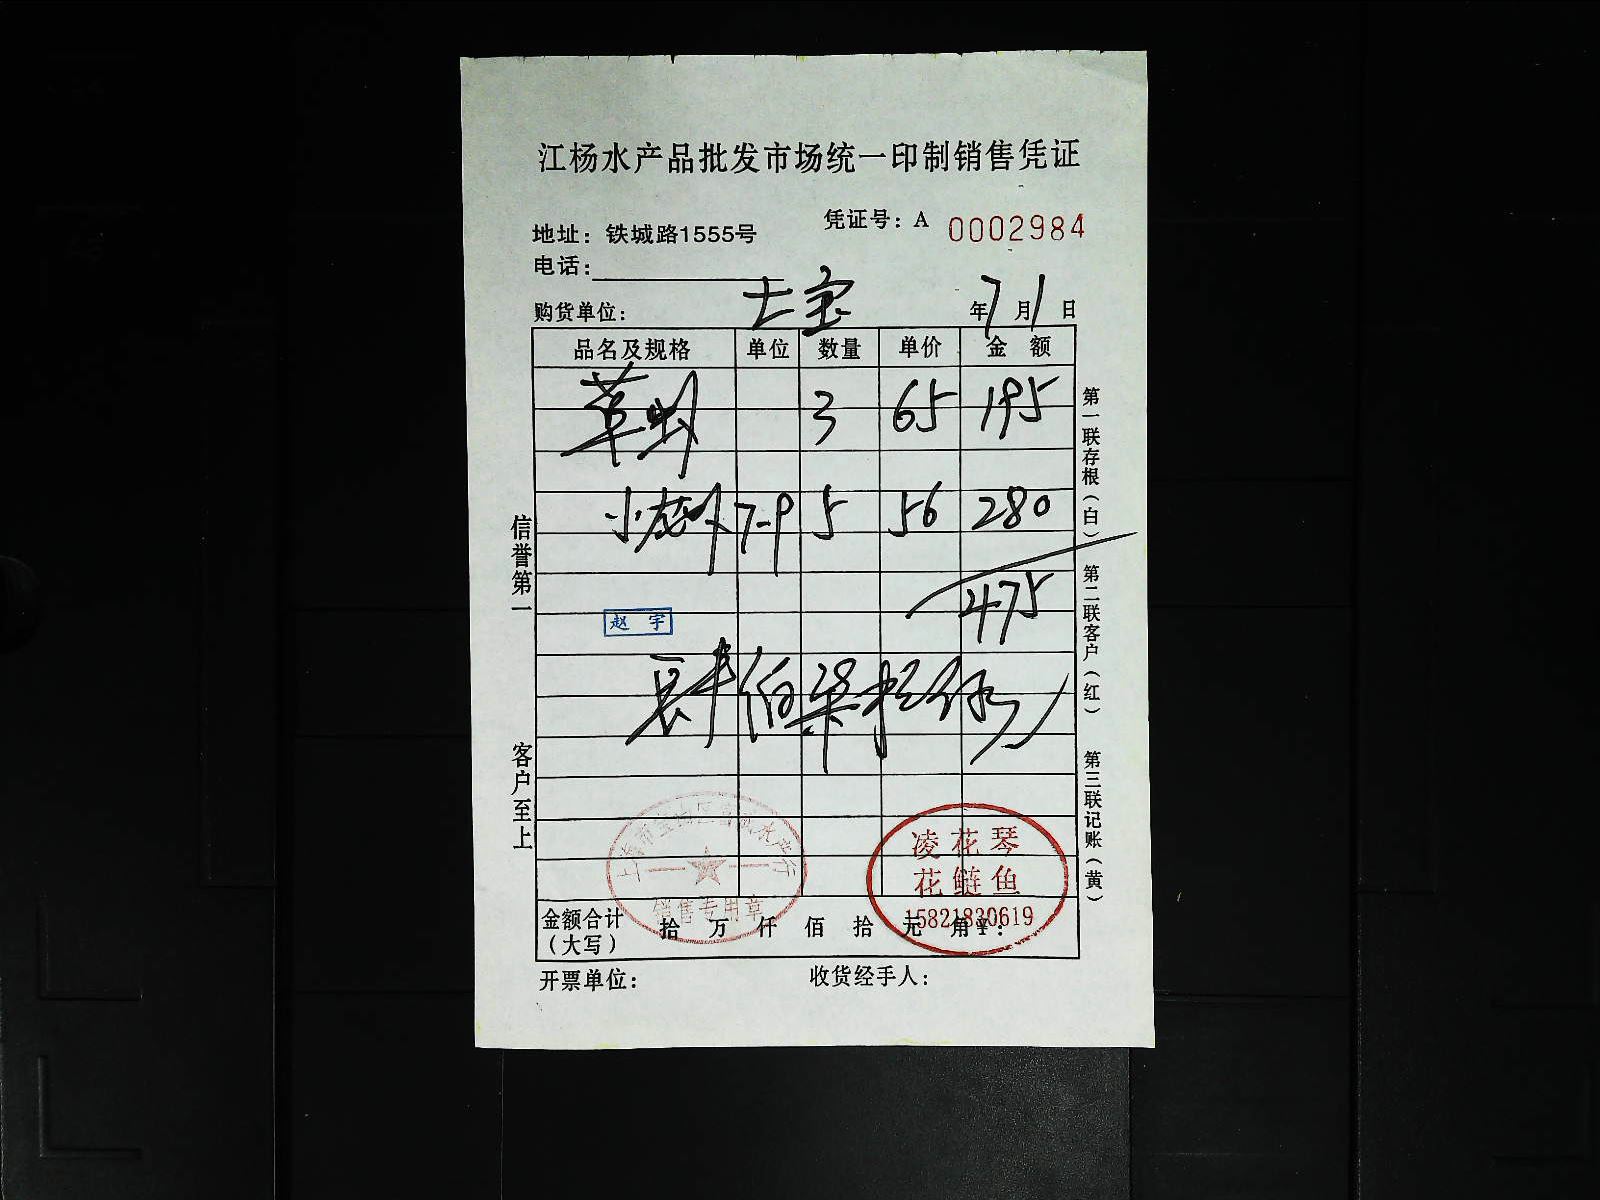 江杨水产品批发市场统一印制销售凭证
凭证号：A 0002984
地址：铁城路1555号
电话：
购货单位： 七宝 年 7 月 1 日
品名及规格 单位 数量 单价 金 额
草虾 3 65 195
小龙虾 7-9 5 56 280
475
赵 宇
肆佰柒拾伍
信誉第一
客户至上
第一联存根（白）
第二联客户（红）
第三联记账（黄）
销售专用章
凌花琴
花鲢鱼
15821830619
金额合计（大写） 拾 万 仟 佰 拾 元 角 ¥：
开票单位： 收货经手人：